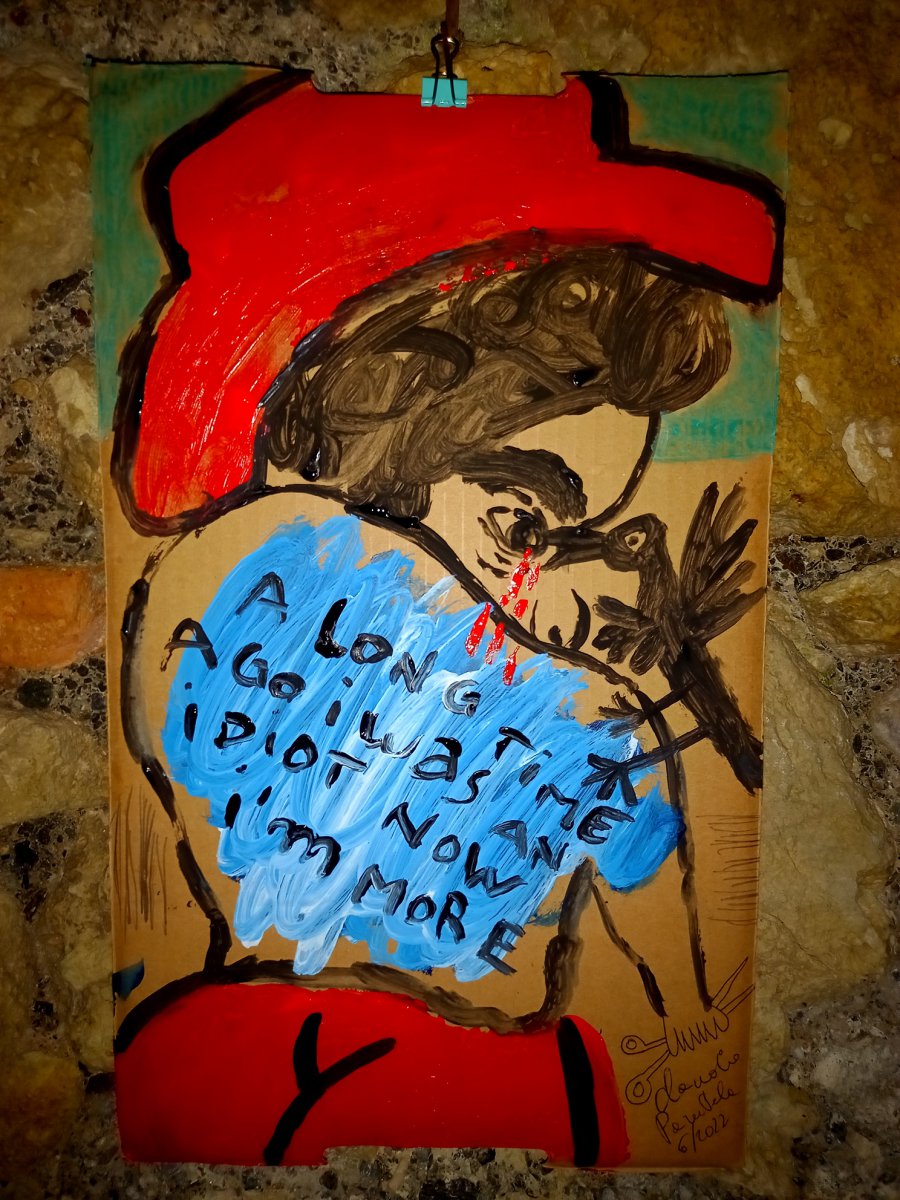 A LONG TIME
AGO i WAS AN
iDiOT NOW
i'm MORE
Claudio
Parentela
6/2022